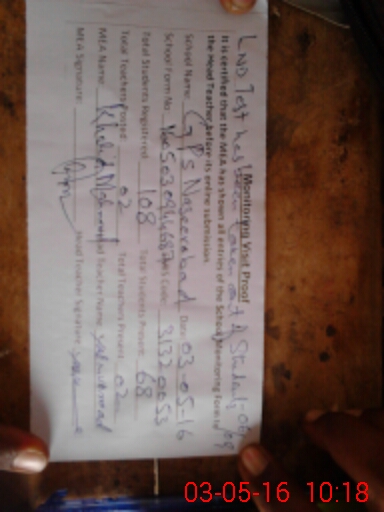 LND Test has been taken out 2 Students-06/08
Monitoring Visit Proof
It is certified that the MEA has shown all entries of the School Monitoring Form to
the Head Teacher before its online submission.
School Name: GPS Naseerabad Date: 03-05-16
School Form No: Code: 31320053
Total Students Registered 108 Total Students Present: 68
Total Teachers Posted 02 Total Teachers Present: 02
MEA Name: Khalid Mehmood Head Teacher Name
MEA Signature: Head Teacher Signature
03-05-16 10:18